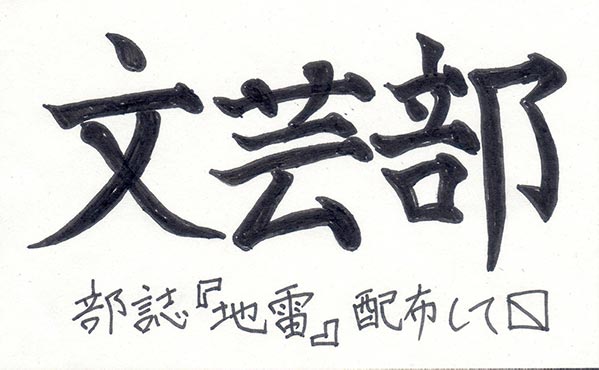 文芸部
部誌『地雷』配布して〼